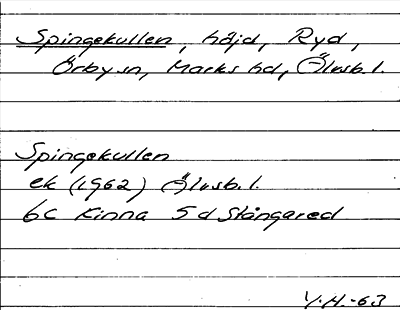 Spingekullen, höjd, Ryd,
Örby sn, Marks hd, Älvsb. l.
Spingekullen
ek (1962) Älvsb. l.
6C Kinna 5 d Stångared
Y.H.-63